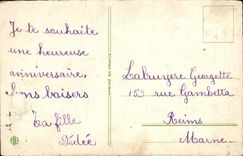 Je te souhaite
une heureuse
anniversaire,
bons baisers
Ta fille
Labruyere Georgette
153 rue Gambetta
Reims
Marne.